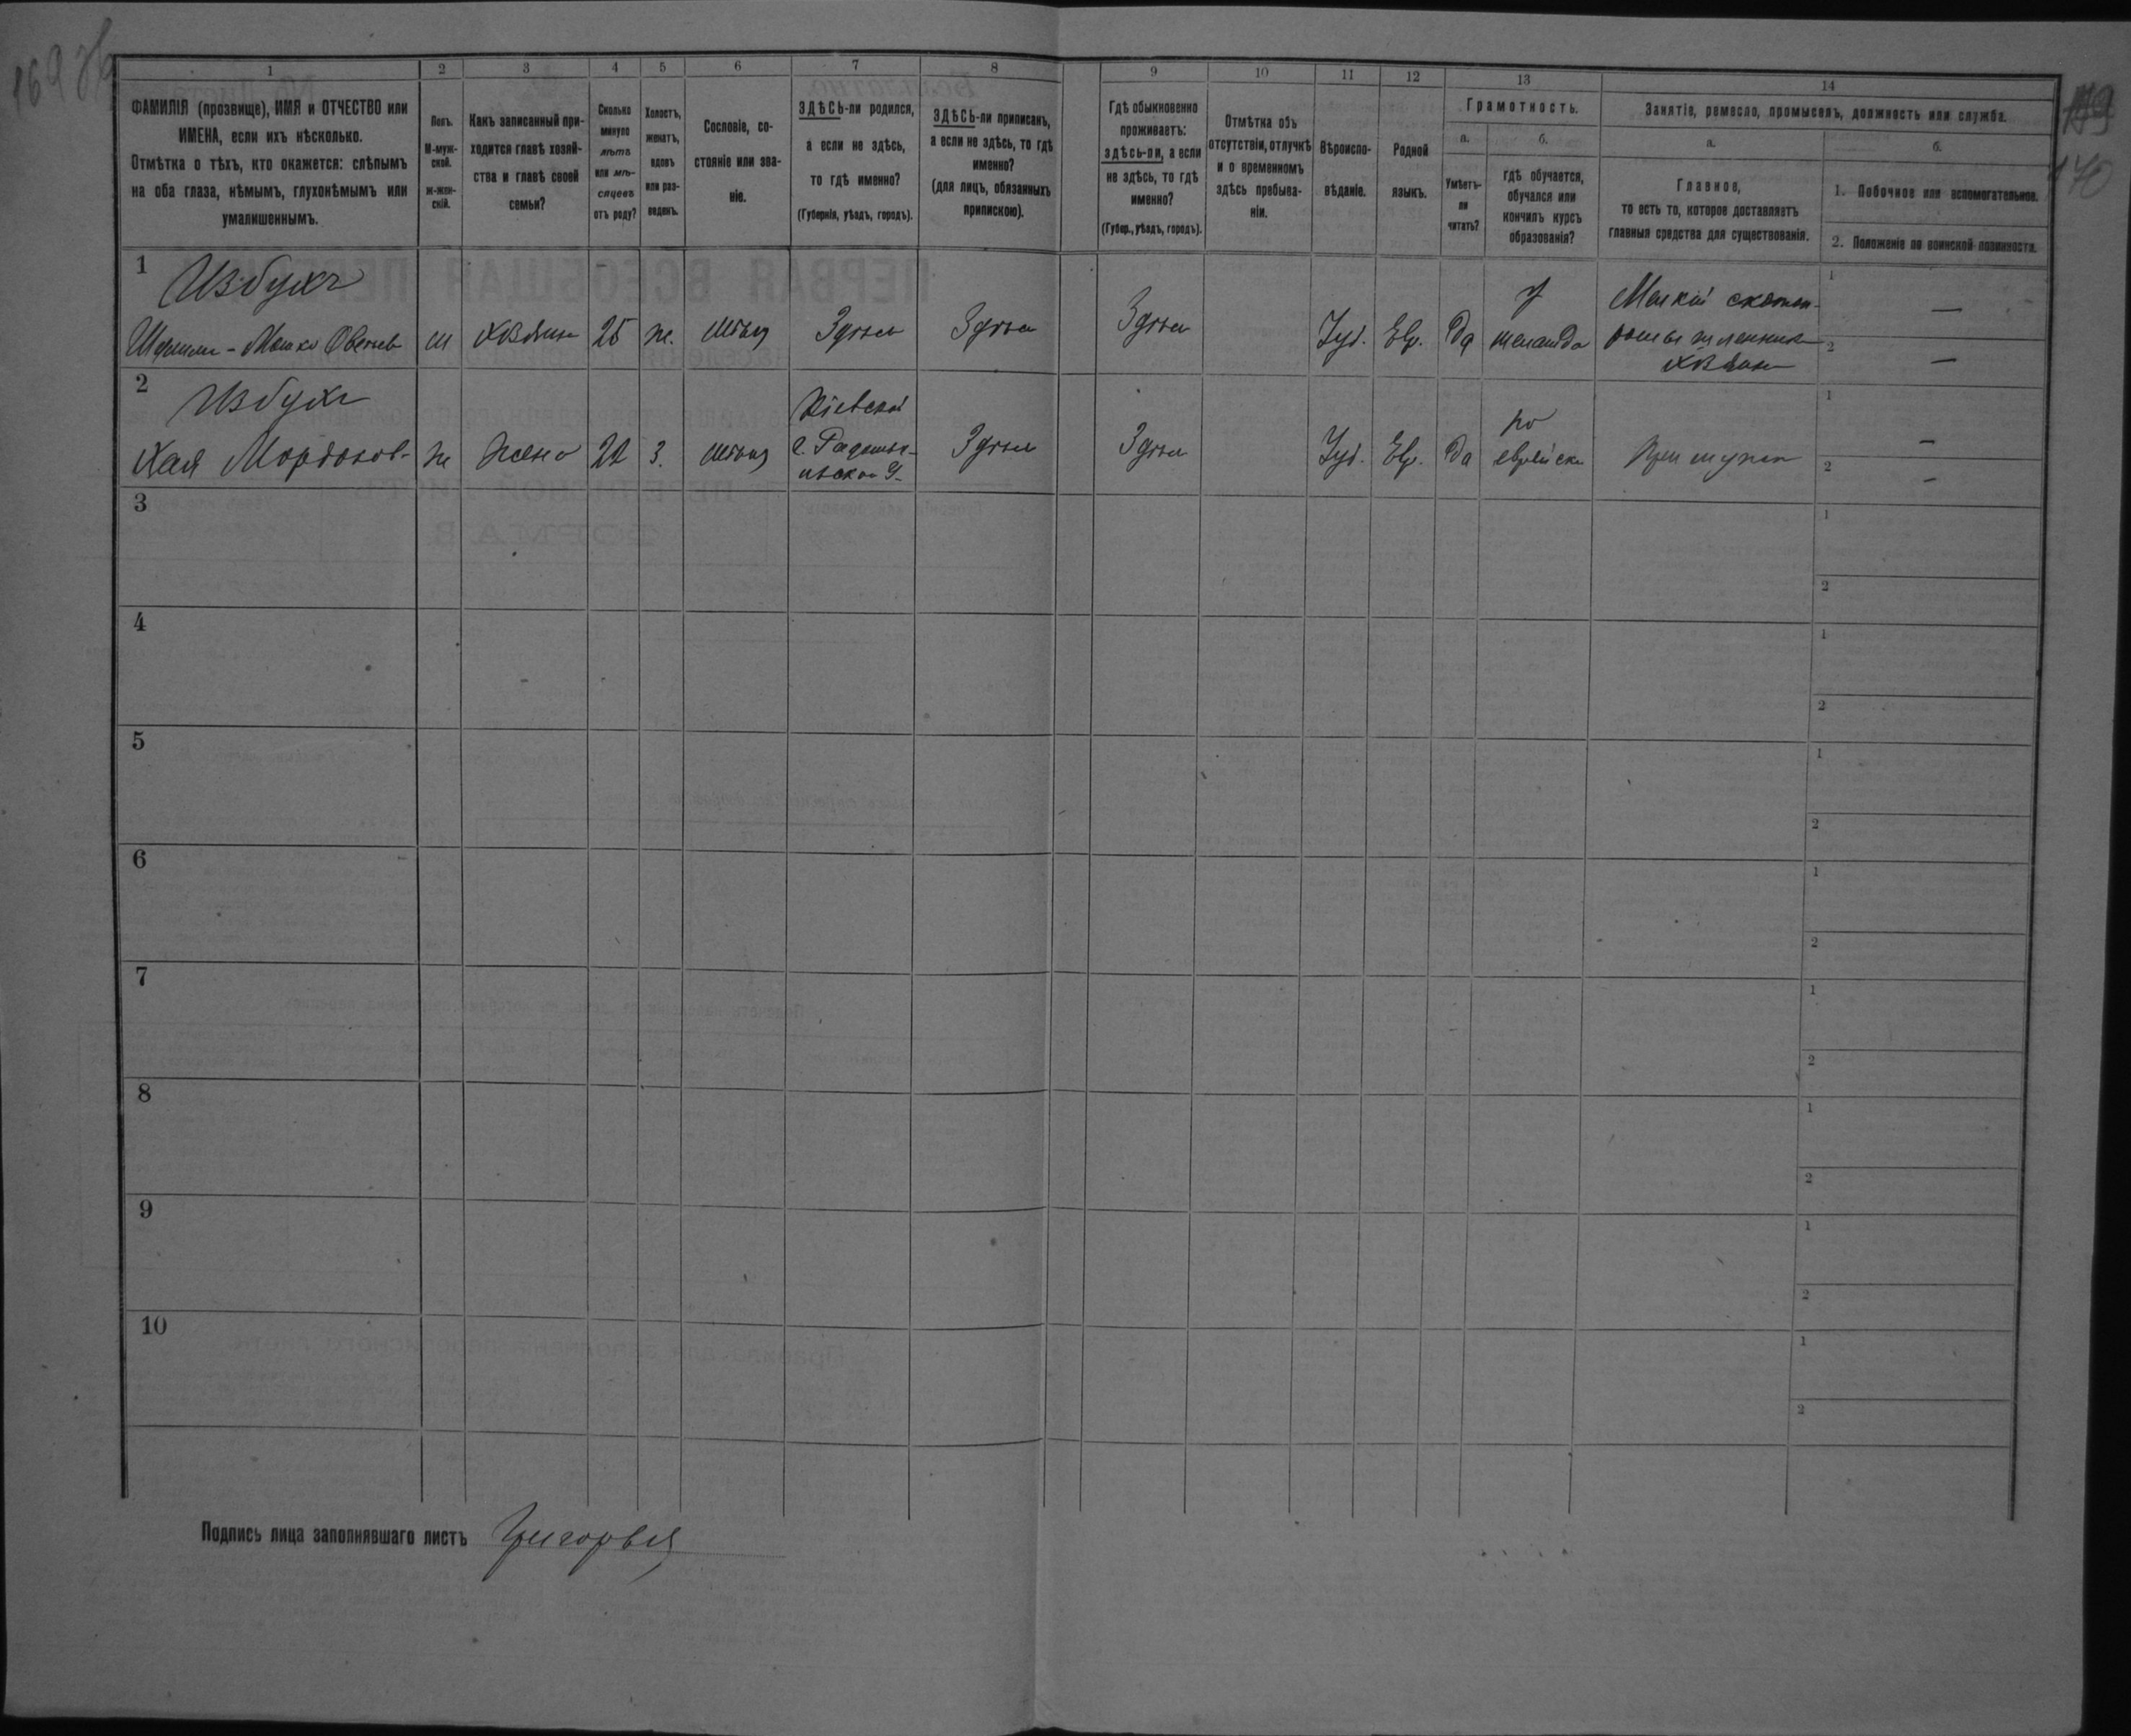 169 об
179
170
1
2
3
4
5
6
7
8
9
10
11
12
13
14
ФАМИЛІЯ (прозвище), ИМЯ и ОТЧЕСТВО или
ИМЕНА, если ихъ нѣсколько.
Отмѣтка о тѣхъ, кто окажется: слѣпымъ
на оба глаза, нѣмымъ, глухонѣмымъ или
умалишеннымъ.
Полъ.
М-муж-
ской.
ж-жен-
скій.
Какъ записанный при-
ходится главѣ хозяй-
ства и главѣ своей
семьи?
Сколько
минуло
лѣтъ
или мѣ-
сяцевъ
отъ роду?
Холостъ,
женатъ,
вдовъ
или раз-
веденъ.
Сословіе, со-
стояніе или зва-
ніе.
ЗДѢСЬ-ли родился,
а если не здѣсь,
то гдѣ именно?
(Губернія, уѣздъ, городъ).
ЗДѢСЬ-ли приписанъ,
а если не здѣсь, то гдѣ
именно?
(для лицъ, обязанныхъ
припискою).
Гдѣ обыкновенно
проживаетъ:
здѣсь-ли, а если
не здѣсь, то гдѣ
именно?
(Губер., уѣздъ, городъ).
Отмѣтка объ
отсутствіи, отлучкѣ
и о временномъ
здѣсь пребыва-
ніи.
Вѣроиспо-
вѣданіе.
Родной
языкъ.
Грамотность.
а.
Умѣетъ-
ли
читать?
б.
гдѣ обучается,
обучался или
кончилъ курсъ
образованія?
Занятіе, ремесло, промыселъ, должность или служба.
а.
Главное,
то есть то, которое доставляетъ
главныя средства для существованія.
б.
1. Побочное или вспомогательное.
2. Положеніе по воинской повинности.
1
Избухъ
м
Хозяин
25
ж.
мѣщ
Здѣсь
Здѣсь
Здѣсь
Іуд.
Евр.
Да
У
меламда
Мелкій
Хозяин
1
—
2
—
2
Избухъ
Хая Мордков-
ж
Жена
22
з.
мѣщ
Кіевской
г. Радомы-
Здѣсь
Здѣсь
Іуд.
Евр.
Да
по
еврейски
При мужѣ
1
—
2
—
3
1
2
4
1
2
5
1
2
6
1
2
7
1
2
8
1
2
9
1
2
10
1
2
Подпись лица заполнявшаго листъ